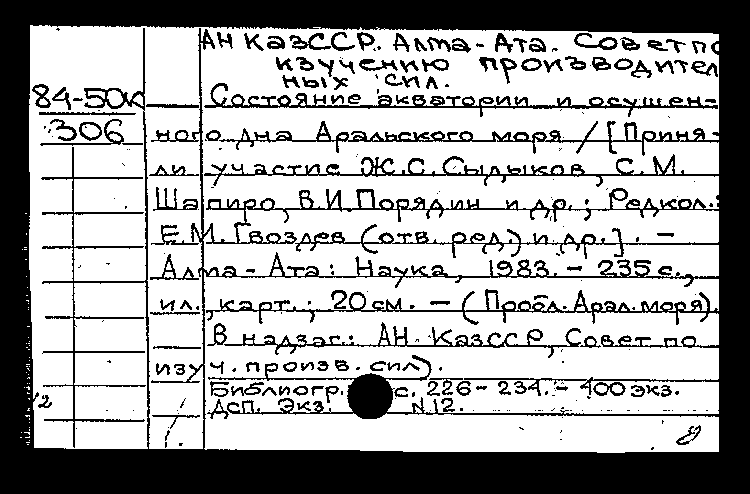 АН КазССР. Алма-Ата. Совет по
изучению производител
ных сил.
84-50к
306
Состояние акватории и осушен-
ного дна Аральского моря / [Приня-
ли участие Ж.С. Сыдыков, С.М.
Шапиро, В.И. Порядин и др.; Редкол.:
Е.М. Гвоздев (отв. ред.) и др.]. -
Алма-Ата: Наука, 1983. - 235 с.,
ил., карт.; 20 см. - (Пробл. Арал. моря).
В надзаг.: АН КазССР, Совет по
изуч. произв. сил).
Библиогр. с. 226-234. - 400 экз.
ДСП. Экз. N12.
12